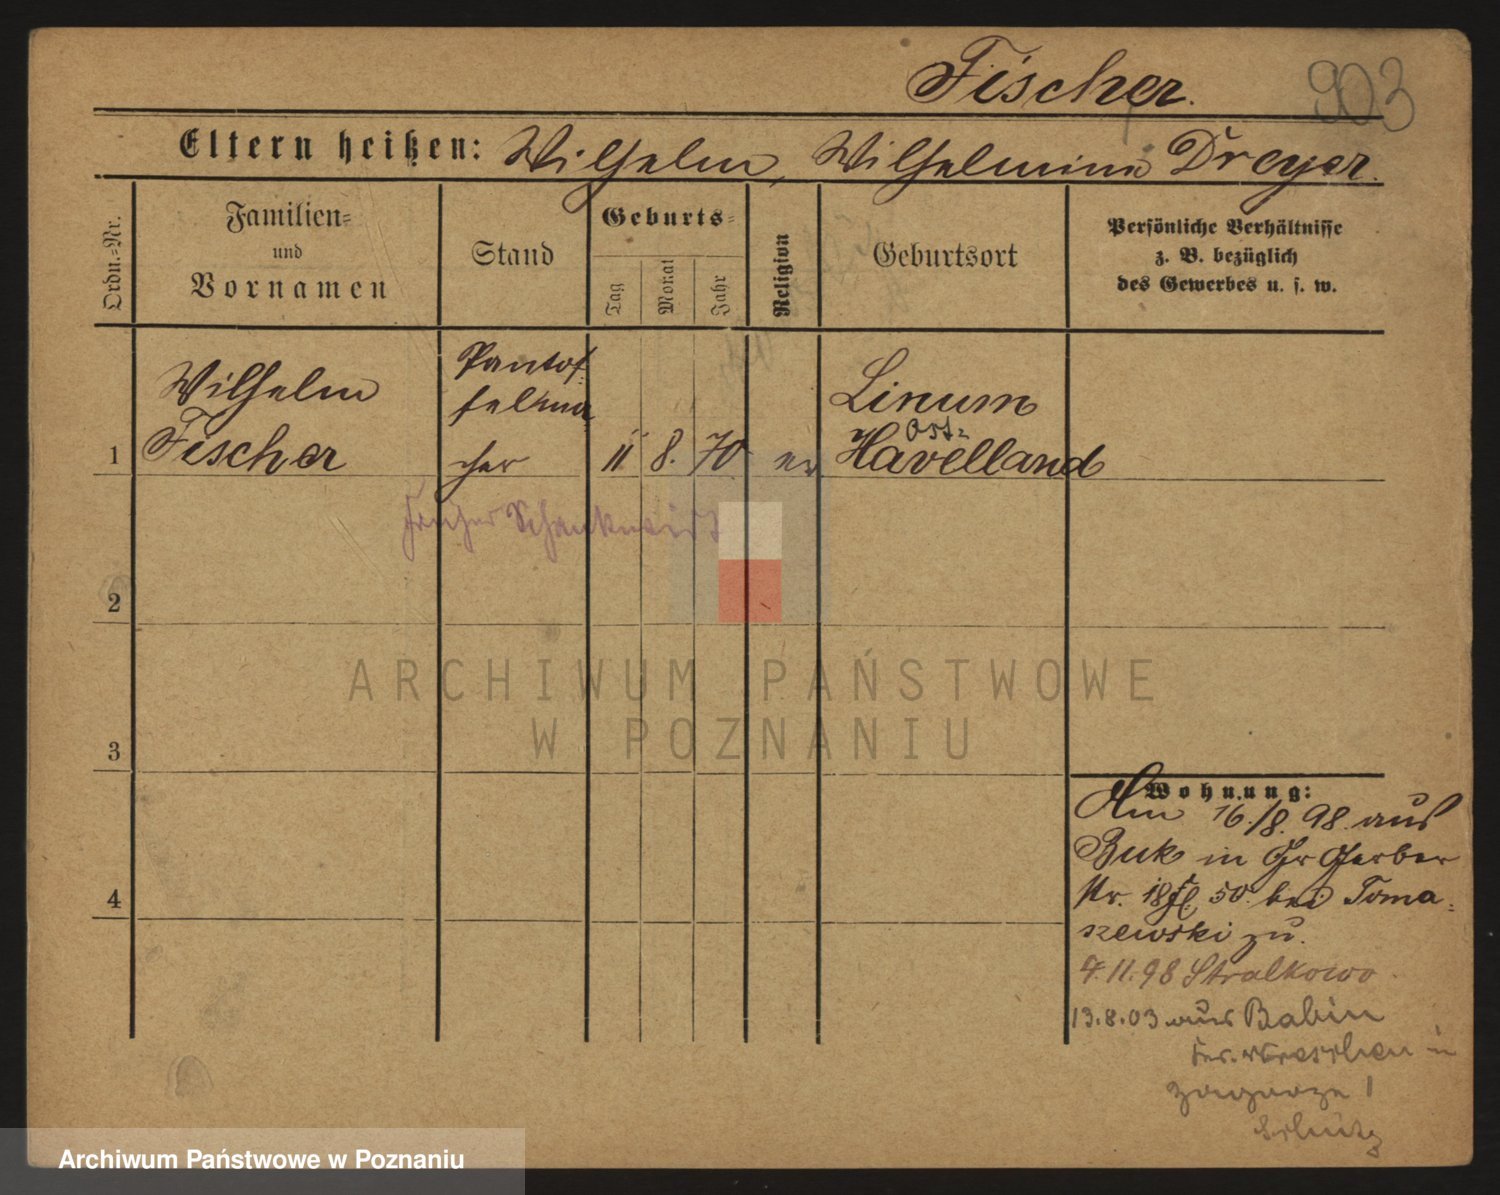 Fischer.
903
Eltern heißen: Wilhelm, Wilhelmine Dreyer.
Ordn.=Nr.
Familien=
und
Vornamen
Stand
Geburts=
Tag
Monat
Jahr
Religion
Geburtsort
Persönliche Verhältnisse
z. B. bezüglich
des Gewerbes u. s. w.
Wilhelm
Fischer
Pantof-
felma-
cher
11 8. 70
ev
Linum
Ost=
Havelland
1
früher Schankwirt
2
ARCHIWUM PAŃSTWOWE
W POZNANIU
3
Wohnung:
Am 16./8. 98. aus
Buk in Gr Gerber
Str. 50. bei Toma=
szewski zu.
4
4.11.98 Stralkowo.
13.8.03 aus Babin
Kr. Wreschen in
Zagorze 1
Archiwum Państwowe w Poznaniu